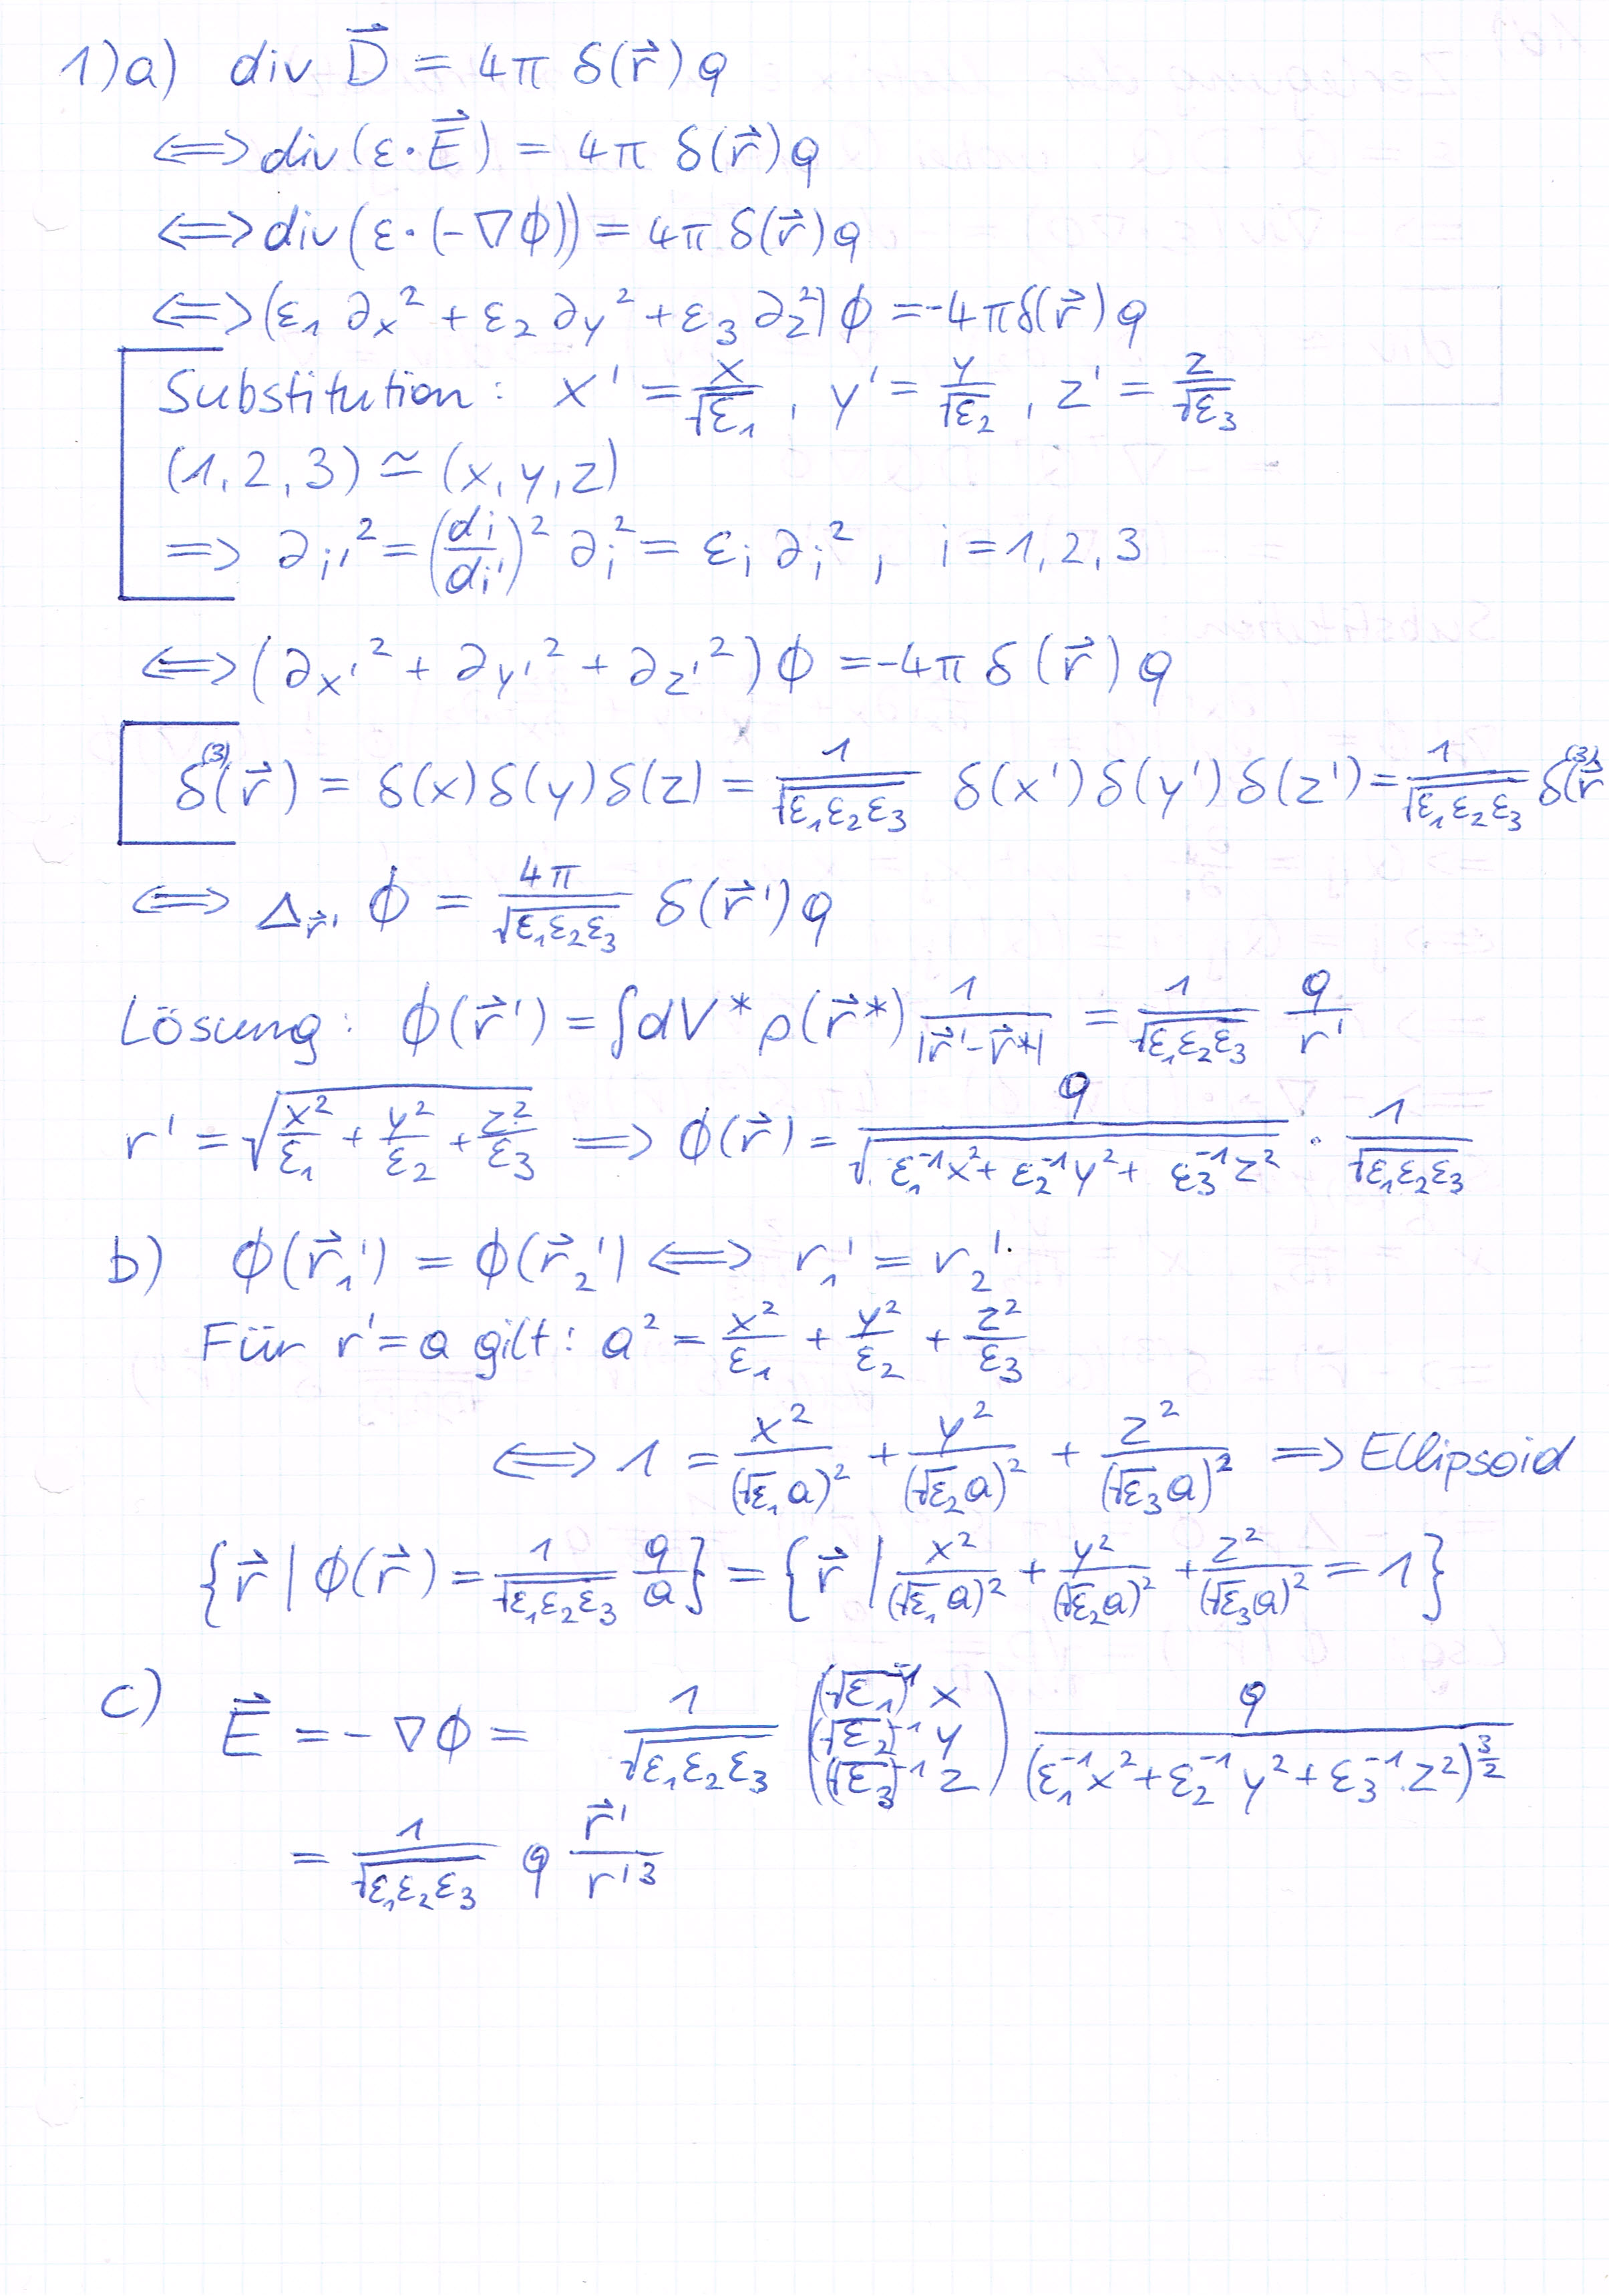 1)a) div D⃗ = 4π δ(r⃗)q
⟺ div(ε·E⃗) = 4π δ(r⃗)q
⟺ div(ε·(-∇ϕ)) = 4π δ(r⃗)q
⟺ (ε₁ ∂x² + ε₂ ∂y² + ε₃ ∂z²)ϕ = -4πδ(r⃗)q
Substitution: x' = x/√ε₁, y' = y/√ε₂, z' = z/√ε₃
(1,2,3) ≃ (x,y,z)
=> ∂i'² = (di/di')² ∂i² = εi ∂i², i = 1,2,3
⟺ (∂x'² + ∂y'² + ∂z'²)ϕ = -4π δ(r⃗)q
δ⁽³⁾(r⃗) = δ(x)δ(y)δ(z) = 1/√(ε₁ε₂ε₃) δ(x')δ(y')δ(z') = 1/√(ε₁ε₂ε₃) δ⁽³⁾(r⃗
⟺ Δr⃗' ϕ = 4π/√(ε₁ε₂ε₃) δ(r⃗')q
Lösung: ϕ(r⃗') = ∫dV* ρ(r⃗*) 1/|r⃗'-r⃗*| = 1/√(ε₁ε₂ε₃) q/r'
r' = √(x²/ε₁ + y²/ε₂ + z²/ε₃) => ϕ(r⃗) = q/√(ε₁⁻¹x² + ε₂⁻¹y² + ε₃⁻¹z²) · 1/√(ε₁ε₂ε₃)
b) ϕ(r⃗₁') = ϕ(r⃗₂') ⟺ r₁' = r₂'
Für r' = a gilt: a² = x²/ε₁ + y²/ε₂ + z²/ε₃
⟺ 1 = x²/(√ε₁a)² + y²/(√ε₂a)² + z²/(√ε₃a)² => Ellipsoid
{r⃗ | ϕ(r⃗) = 1/√(ε₁ε₂ε₃) q/a} = {r⃗ | x²/(√ε₁a)² + y²/(√ε₂a)² + z²/(√ε₃a)² = 1}
c) E⃗ = -∇ϕ = 1/√(ε₁ε₂ε₃) ((√ε₁)⁻¹x (√ε₂)⁻¹y (√ε₃)⁻¹z) q/(ε₁⁻¹x² + ε₂⁻¹y² + ε₃⁻¹z²)^(3/2)
= 1/√(ε₁ε₂ε₃) q r⃗'/r'³